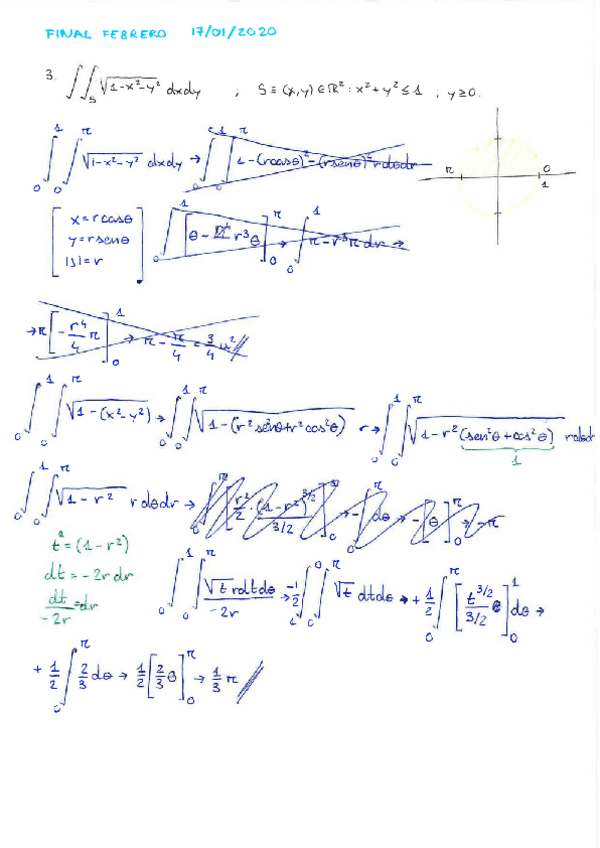 FINAL FEBRERO 17/01/2020
3. ∬_S √(1-x²-y²) dxdy ; S ≡ (x,y) ∈ ℝ² : x²+y² ≤ 1 , y ≥ 0.
∫₀¹ ∫₀^π √(1-x²-y²) dxdy → ∫₀¹ ∫₀^π 1-(rcosθ)²-(rsenθ)² rdθdr
π 0 1
[ x = r cosθ
y = r senθ
|J| = r ]
∫₀¹ [θ - r³θ]₀^π → ∫₀¹ π - r³π dr →
→ π [- r⁴/4 π]₀¹ → π - π/4 = 3/4 π² //
∫₀¹ ∫₀^π √(1-(x²-y²)) → ∫₀¹ ∫₀^π √(1-(r²sen²θ+r²cos²θ)) r → ∫₀¹ ∫₀^π √(1-r²(sen²θ+cos²θ)) rdθdr
1
∫₀¹ ∫₀^π √(1-r²) rdθdr → ∫ [r²/2 · (1-r²)^(3/2) / 3/2]₀ → -∫₀^π dθ → -[θ]₀^π → -π
t² = (1-r²)
dt = -2r dr
dt/-2r = dr
∫₀¹ ∫₀^π √t rdtdθ / -2r → -1/2 ∫₁⁰ ∫₀^π √t dtdθ → + 1/2 ∫₀^π [t^(3/2) / 3/2 θ]₀¹ dθ →
+ 1/2 ∫₀^π 2/3 dθ → 1/2 [2/3 θ]₀^π → 1/3 π //